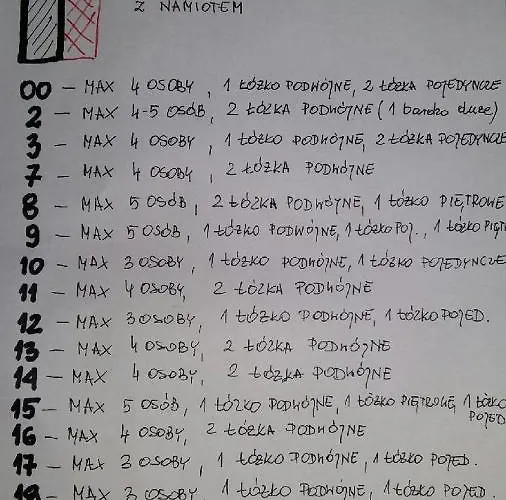 Z NAMIOTEM
00 - MAX 4 OSOBY, 1 ŁÓŻKO PODWÓJNE, 2 ŁÓŻKA POJEDYNCZE
2 - MAX 4-5 OSÓB, 2 ŁÓŻKA PODWÓJNE (1 bardzo duże)
3 - MAX 4 OSOBY, 1 ŁÓŻKO PODWÓJNE, 2 ŁÓŻKA POJEDYNCZE
7 - MAX 4 OSOBY, 2 ŁÓŻKA PODWÓJNE
8 - MAX 5 OSÓB, 2 ŁÓŻKA PODWÓJNE, 1 ŁÓŻKO PIĘTROWE
9 - MAX 5 OSÓB, 1 ŁÓŻKO PODWÓJNE, 1 ŁÓŻKO POJ., 1 ŁÓŻKO
10 - MAX 3 OSOBY, 1 ŁÓŻKO PODWÓJNE, 1 ŁÓŻKO POJEDYNCZE
11 - MAX 4 OSOBY, 2 ŁÓŻKA PODWÓJNE
12 - MAX 3 OSOBY, 1 ŁÓŻKO PODWÓJNE, 1 ŁÓŻKO POJED.
13 - MAX 4 OSOBY, 2 ŁÓŻKA PODWÓJNE
14 - MAX 4 OSOBY, 2 ŁÓŻKA PODWÓJNE
15 - MAX 5 OSÓB, 1 ŁÓŻKO PODWÓJNE, 1 ŁÓŻKO PIĘTROWE, 1 ŁÓŻKO
POJED.
16 - MAX 4 OSOBY, 2 ŁÓŻKA PODWÓJNE
17 - MAX 3 OSOBY, 1 ŁÓŻKO PODWÓJNE, 1 ŁÓŻKO POJED.
18 - MAX 3 OSOBY, 1 ŁÓŻKO PODWÓJNE, 1 ŁÓŻKO POJED.